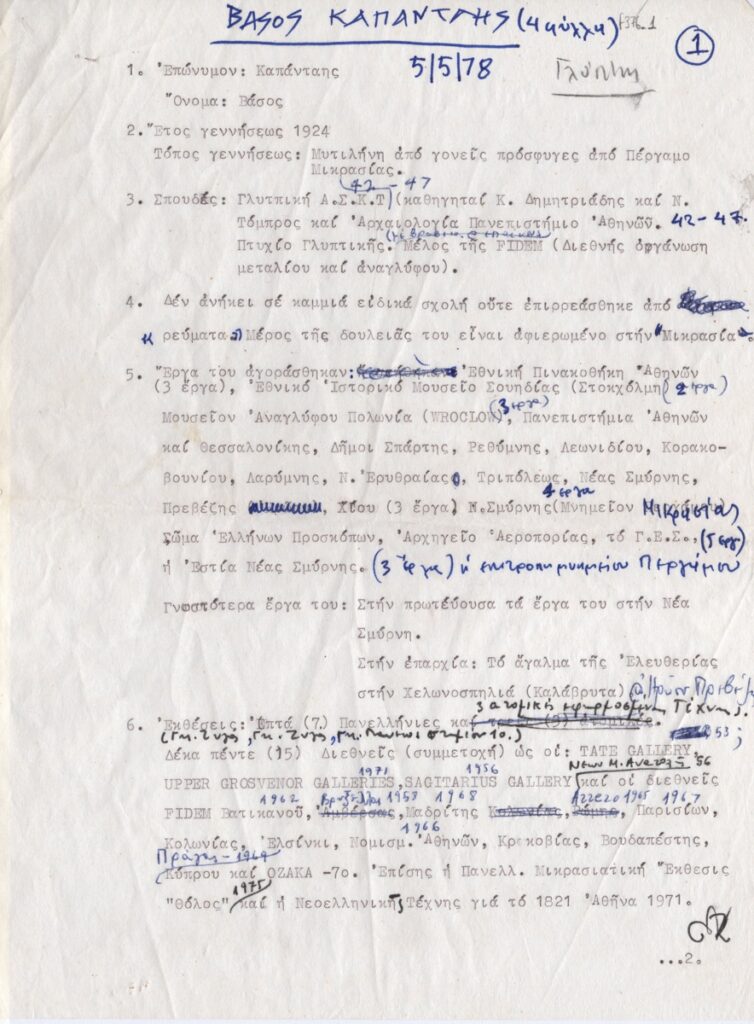 ΒΑΣΟΣ ΚΑΠΑΝΤΑΗΣ (4 φύλλα)
①
5/5/78
Γλύπτης
1. Ἐπώνυμον: Καπάνταης
Ὄνομα: Βάσος
2. Ἔτος γεννήσεως 1924
Τόπος γεννήσεως: Μυτιλήνη ἀπό γονεῖς πρόσφυγες ἀπό Πέργαμο
Μικρασίας.
42 - 47
3. Σπουδές: Γλυπτική Α.Σ.Κ.Τ (καθηγηταί Κ. Δημητριάδης καί Ν.
Τόμπρος καί Ἀρχαιολογία Πανεπιστήμιο Ἀθηνῶν. 42-47.
Πτυχίο Γλυπτικῆς. Μέλος τῆς FIDEM (Διεθνής ὀργάνωση
μεταλίου καί ἀναγλύφου).
4. Δέν ἀνήκει σέ καμμιά εἰδικά σχολή οὔτε ἐπιρρεάσθηκε ἀπό
ρεύματα. Μέρος τῆς δουλειᾶς του εἶναι ἀφιερωμένο στήν "Μικρασία".
5. Ἔργα του ἀγοράσθηκαν: Ἐθνική Πινακοθήκη Ἀθηνῶν
(3 ἔργα), Ἐθνικό Ἱστορικό Μουσεῖο Σουηδίας (Στοκχόλμη (2 ἔργα)
(3 ἔργα)
Μουσεῖον Ἀναγλύφου Πολωνία (WROCLOW), Πανεπιστήμια Ἀθηνῶν
καί Θεσσαλονίκης, Δῆμοι Σπάρτης, Ρεθύμνης, Λεωνιδίου, Κορακο-
βουνίου, Λαρύμνης, Ν. Ἐρυθραίας, Τριπόλεως, Νέας Σμύρνης,
4 ἔργα
Πρεβέζης , Χίου (3 ἔργα) Ν.Σμύρνης (Μνημεῖον Μικρασίας
Σῶμα Ἑλλήνων Προσκόπων, Ἀρχηγεῖο Ἀεροπορίας, τό Γ.Ε.Σ., (5 ἔργ)
ἡ Ἑστία Νέας Σμύρνης. (3 ἔργα) ἡ ἐπιτροπή μνημείου Περγάμου
Γνωστότερα ἔργα του: Στήν πρωτέυουσα τά ἔργα του στήν Νέα
Σμύρνη.
Στήν ἐπαρχία: Τό ἄγαλμα τῆς Ἐλευθερίας
στήν Χελωνοσπηλιά (Καλάβρυτα)
3 ἀτομικές ἐφηρμοσμένης Τέχνης.
6. Ἐκθέσεις: Ἑπτά (7) Πανελλήνιες καί τρεῖς (3) ἀτομικές.
53;
Δέκα πέντε (15) Διεθνεῖς (συμμετοχή) ὡς οἱ: TATE GALLERY,
56
1971 1956
UPPER GROSVENOR GALLERIES, SAGITARIUS GALLERY καί οἱ διεθνεῖς
1962 Βρυξέλλες 1958 1968 Arezzo 1965 1967
FIDEM Βατικανοῦ, Ἀμβέρσας, Μαδρίτης Κολωνίας, Ρώμης, Παρισίων,
1966
Κολωνίας, Ἑλσίνκι, Νομισμ. Ἀθηνῶν, Κρακοβίας, Βουδαπέστης,
Πράγας - 1969
Κύπρου καί OZAKA -7ο. Ἐπίσης ἡ Πανελλ. Μικρασιατική Ἔκθεσις
1975
"Θόλος" καί ἡ Νεοελληνικῆς Τέχνης γιά τό 1821 Ἀθῆνα 1971.
...2.